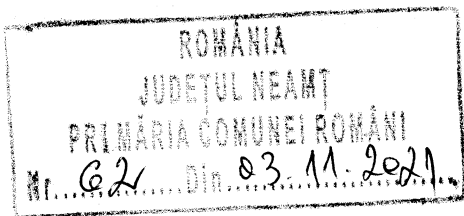 ROMÂNIA
JUDEȚUL NEAMȚ
PRIMĂRIA COMUNEI ROMÂNI
Nr. 62 Din 03.11.2021